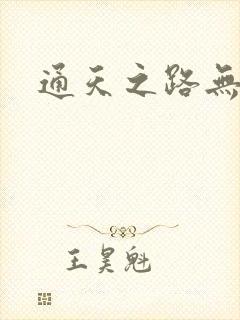 通天之路無
王昊魁